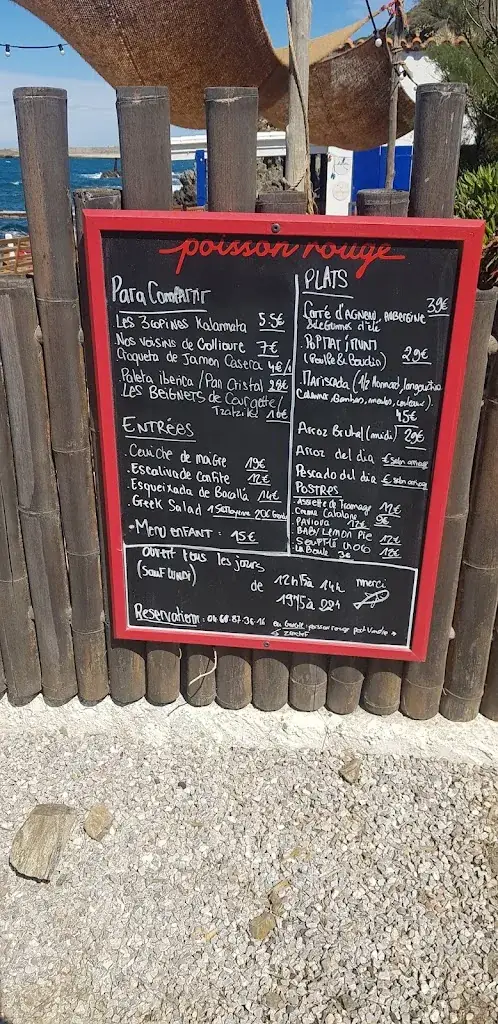 poisson rouge
Para Compartir
Les 3 copines Kalamata 5.5€
Nos voisins de Collioure 7€
Croqueta de Jamon Casera 4€/1
Paleta iberica / Pan Cristal 28€
Les Beignets de Courgette /
Tzatziki 16€
ENTRÉES
. Ceviche de maigre 19€
. Escalivade confite 12€
. Esqueixada de Bacallà 14€
. Greek Salad 15€ Moyenne 20€ Grande
• Menu enfant : 15€
PLATS
Carré d'AGNEAU, AUBERGINE 39€
& Légumes d'été
(Poulpe & Boudin) 29€
Mariscada (1/2 Homard, langoustine
45€
Arroz Brutal (midi) 29€
Arroz del dia € selon arrivage
Pescado del dia € selon arrivage
POSTRES
Assiette de fromage 11€
Crème Catalane 9€
PAVLOVA 12€
BABY LEMON PIE 12€
SOUFFLÉ choco 12€
La Boule 3€
OUVERT tous les jours
(SAUF LUNDI)
de 12h15 à 14h merci
19h15 à 22h
Reservations : 04.68.87.36.16 ou Google : poisson rouge port Vendres